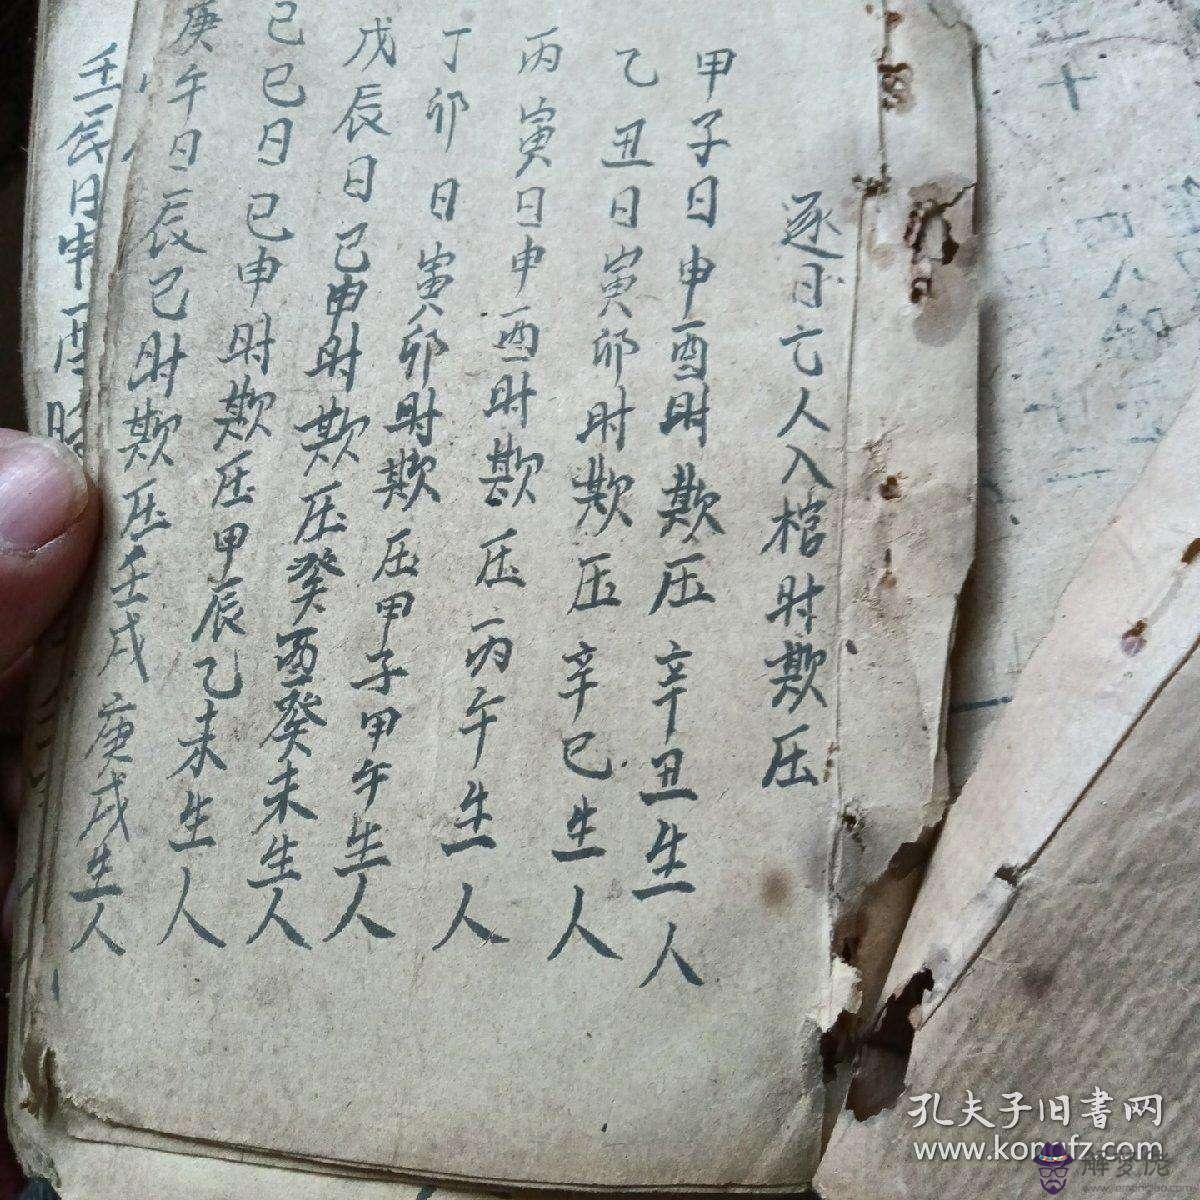 逐日亡人入棺时欺压
甲子日申酉时欺压辛丑生人
乙丑日寅卯时欺压辛巳生人
丙寅日申酉时欺压丙午生人
丁卯日寅卯时欺压甲子甲午生人
戊辰日巳申时欺压癸酉癸未生人
己巳日巳申时欺压甲辰乙未生人
庚午日辰巳时欺压壬戌庚戌生人
壬辰日申酉时
孔夫子旧书网
www.kongfz.com
解梦佬